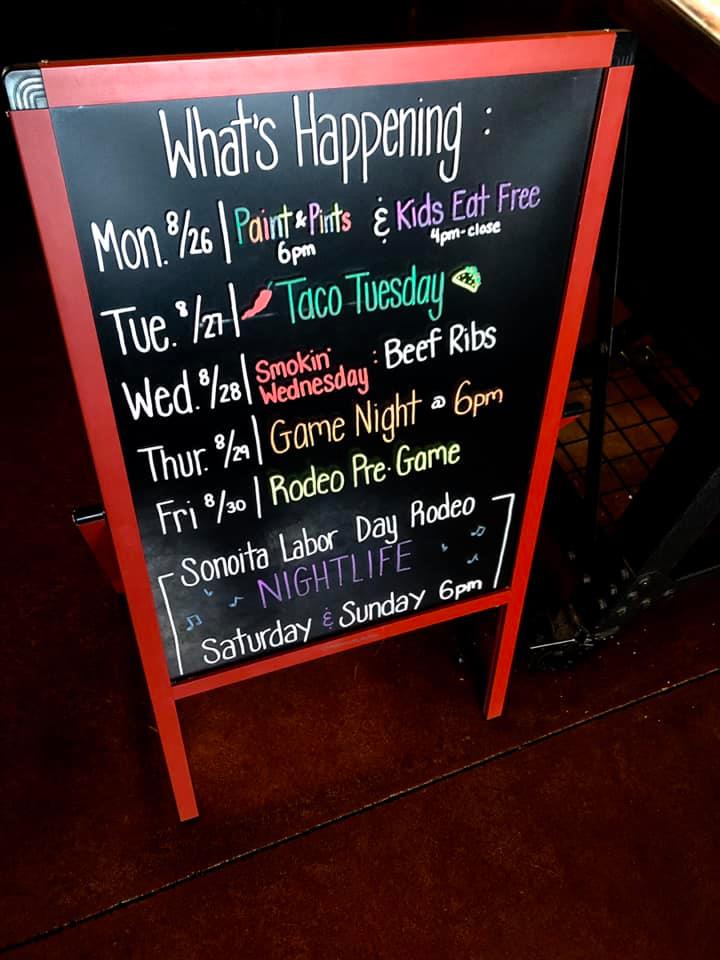 What's Happening :
Mon. 8/26 | Paint & Pints & Kids Eat Free
6pm 4pm-close
Tue. 8/27 | Taco Tuesday
Wed. 8/28 | Smokin' Wednesday : Beef Ribs
Thur. 8/29 | Game Night @ 6pm
Fri 8/30 | Rodeo Pre-Game
Sonoita Labor Day Rodeo
NIGHTLIFE
Saturday & Sunday 6pm